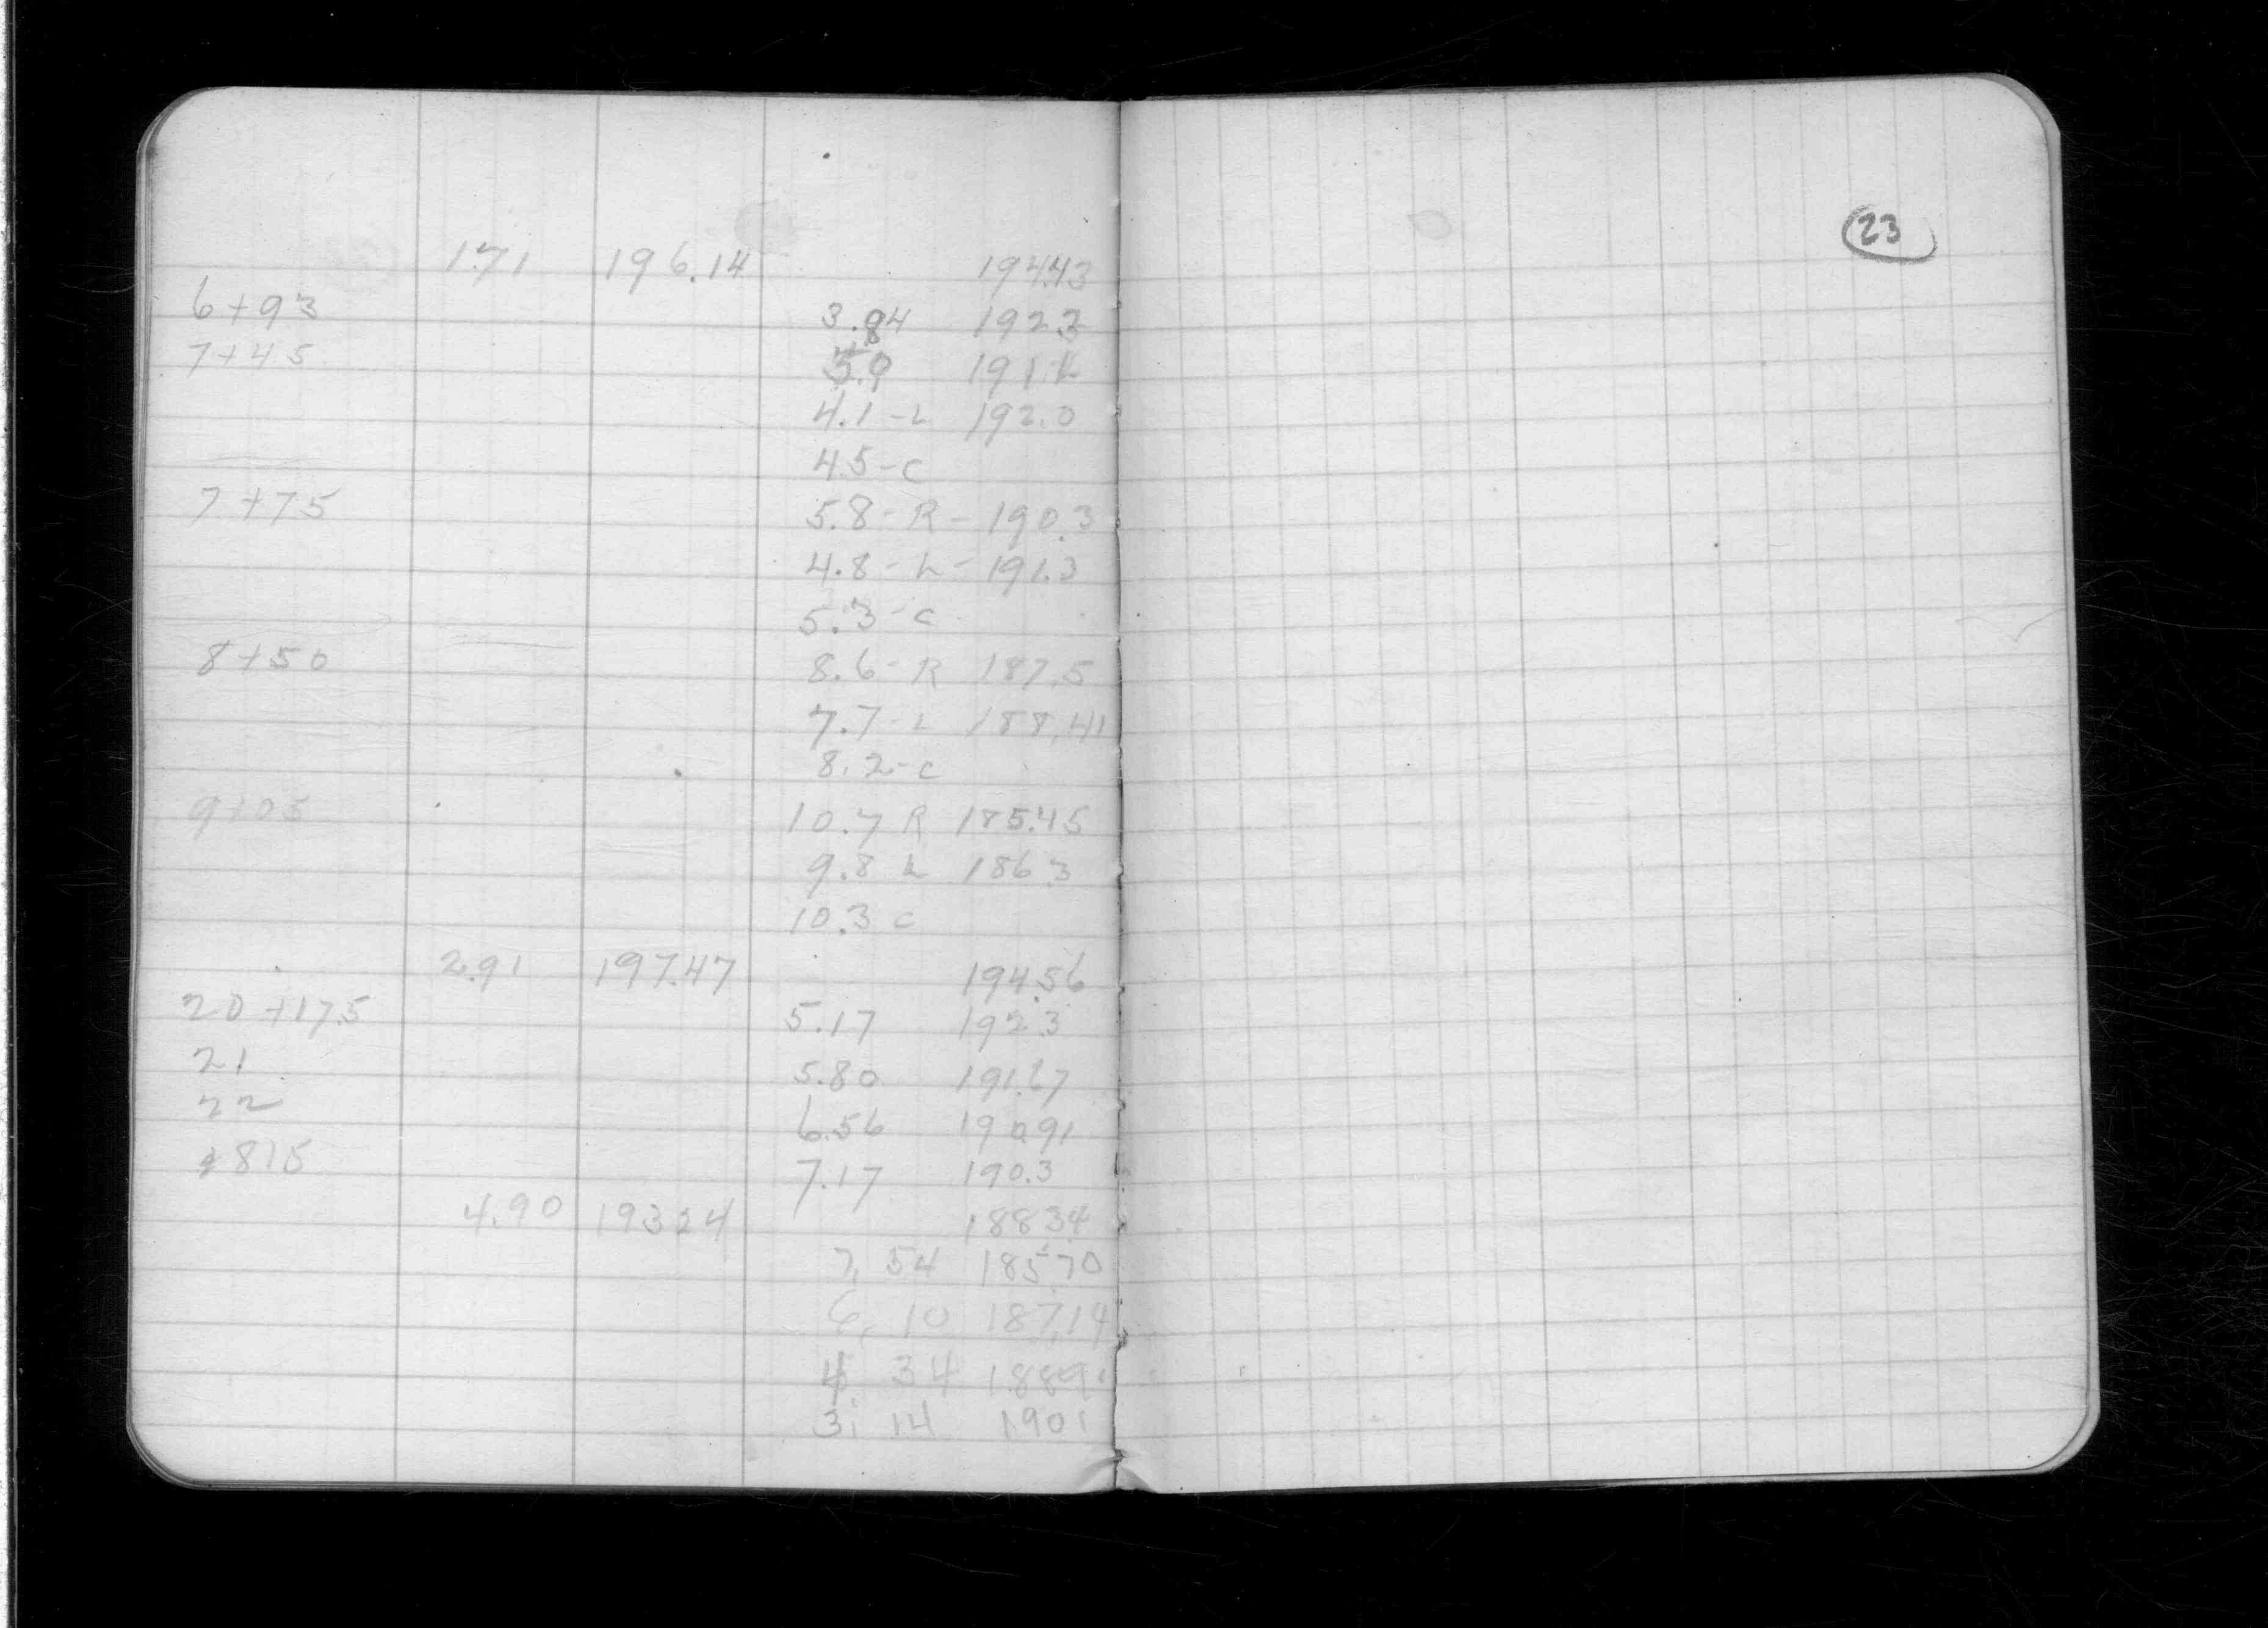 23
1.71 196.14 194.43
6+93 3.84 192.3
7+45 5.0 191.1
4.1-L 192.0
4.5-C
7+75 5.8-R-190.3
4.8-L-191.3
5.3-C
8+50 8.6-R 187.5
7.7-L 188.41
8.2-C
9+05 10.7 R 185.45
9.8 L 186.3
10.3 C
2.91 197.47 194.56
20+17.5 5.17 192.3
21 5.80 191.67
22 6.56 190.91
+815 7.17 190.3
4.90 193.24 188.34
7.54 185.70
6.10 187.14
4.34 188.9
3.14 190.1